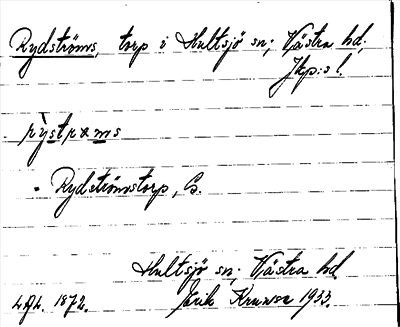 Rydströms, torp i Hultsjö sn; Västra hd;
Jkp:s l.
rỳstrams
• Rydströmstorp, G.
Hultsjö sn; Västra hd
1872. Erik Kranse 1933.